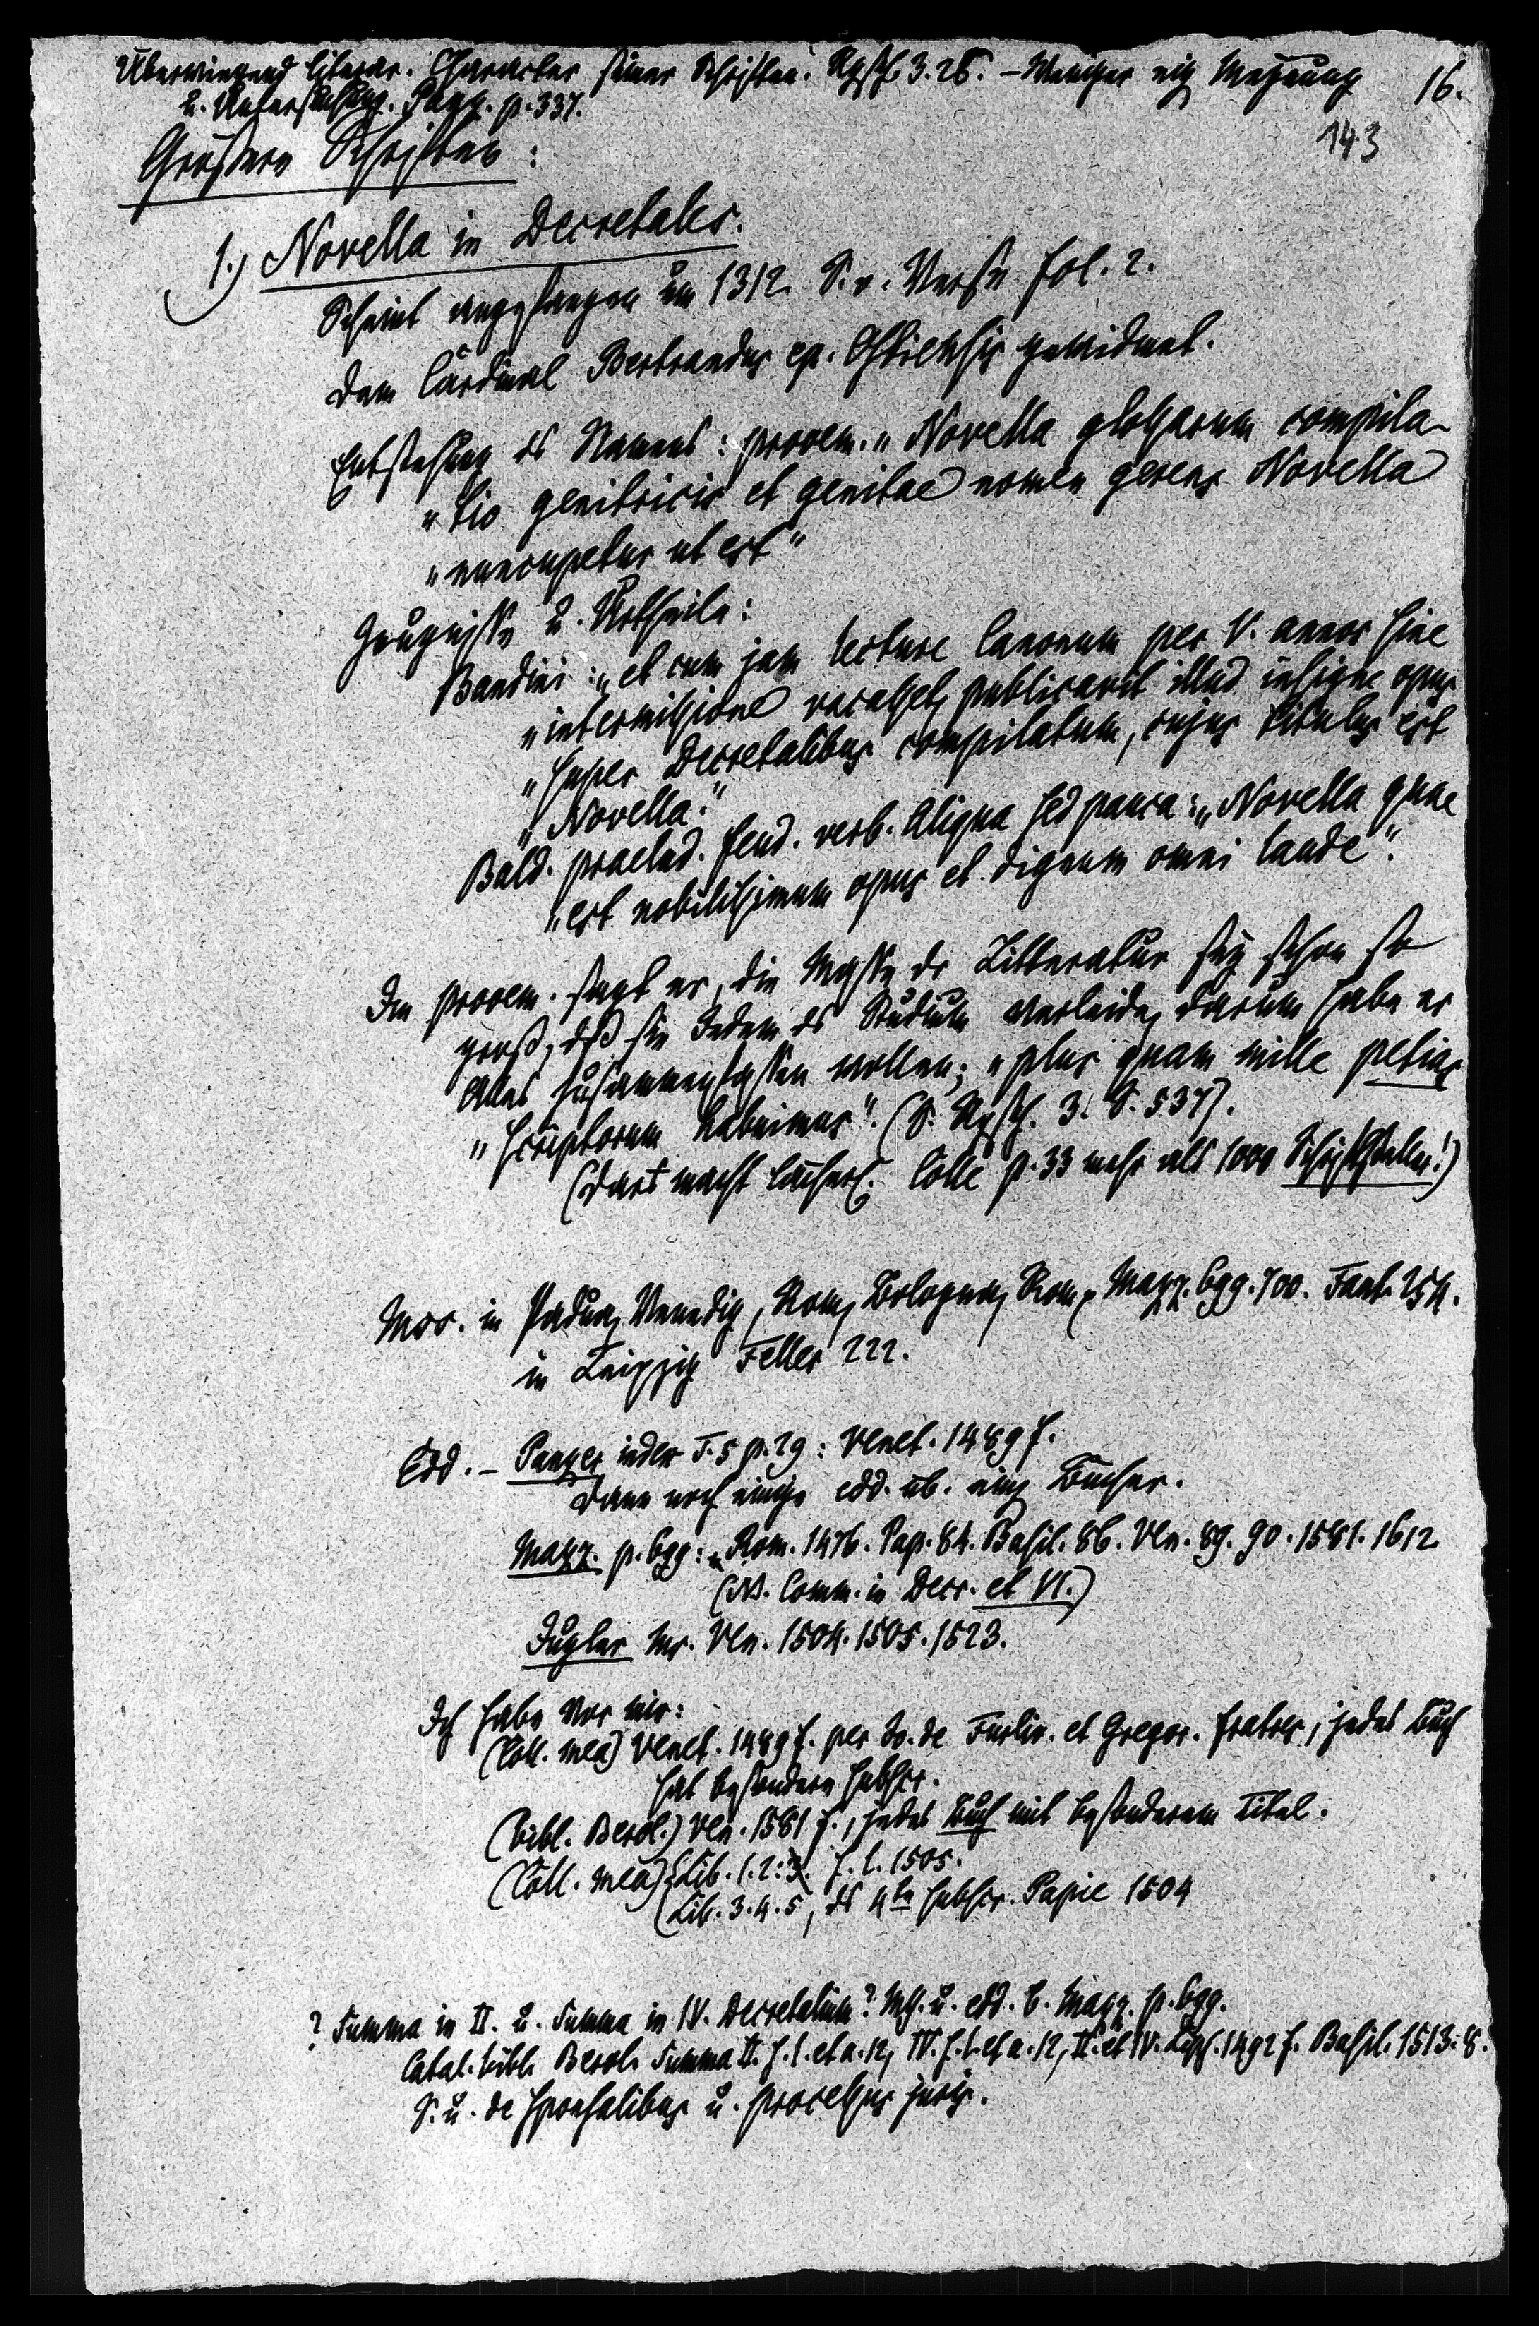 Überwiegend literar. Character seiner Schriften: Rgsch 3. 28. – Weniger eig Meynung 16.
u. Untersuchung. Panz. p. 337.
143
Größere Schriften:
1.) Novella in Decretales.
Scheint angefangen um 1312 S. v. Verse fol. 2.
Dem Cardinal Bertrandus ep. Ostiensis gewidmet.
Entstehung ds Namens: prooem. „Novella glossarum compila-
„tio genitricis et genitae nomen gerens Novella
„nuncupetur ut est"
Zeugnisse u. Urtheile:
Bandini: „et cum jam lecture Canonum per V. annos sine
„intermissione vacasset, publicavit illud insigne opus
„super Decretalibus compilatum, cujus titulus est
„Novella."
Bald. praelud. feud. verb. Aliqua sed pauca: „Novella quae
„est nobilissimum opus et dignum omni laude".
Im prooem. sagt er, die Masse dr Litteratur sey schon so
groß, daß sie Jedem ds Studium verleide, darum habe er
Alles zusammenfassen wollen; „plus quam mille petias
„scriptorum habuimus". (S. Rgsch. 3. S. 537).
(Dart macht lächerl. Colle p. 33 mehr als 1000 Schriftsteller!)
Mss. in Padua, Venedig, Rom, Bologna, Rom, Mazz. 699. 700. Fant. 254.
in Leipzig Feller 222.
Edd. – Panzer index T. 5 p. 29: Venet. 1489 f.
Dann noch einige edd. üb. einz Bücher.
Mazz. p. 699: „Rom. 1476. Pap. 84. Basil. 86. Ven. 89. 90. 1581. 1612
(NB. Comm. in Decr. et VI.)
Jugler Ven. 1504. 1505. 1523.
Ich habe vor mir:
(Coll. mea) Venet. 1489 f. per Jo. de Forliv. et Gregor. fratres, jedes Buch
hat besondere Subscr.
(bibl. Berol.) Ven. 1581 f., jedes Buch mit besonderem Titel.
(Coll. mea) Lib. 1. 2: f. l. 1505.
Lib. 3. 4. 5, ds 4te Subscr. Papie 1504
? Summa in II. u. Summa in IV. Decretalium? Ms. u. edd. b. Mazz. p. 699.
Catal. bibl. Berol. Summa II. s. l. et a. 12, IV. s. l. et a. 12, II. et IV. Lips. 1492 f. Basil. 1513. 8.
S. u. de sponsalibus u. processus juris.